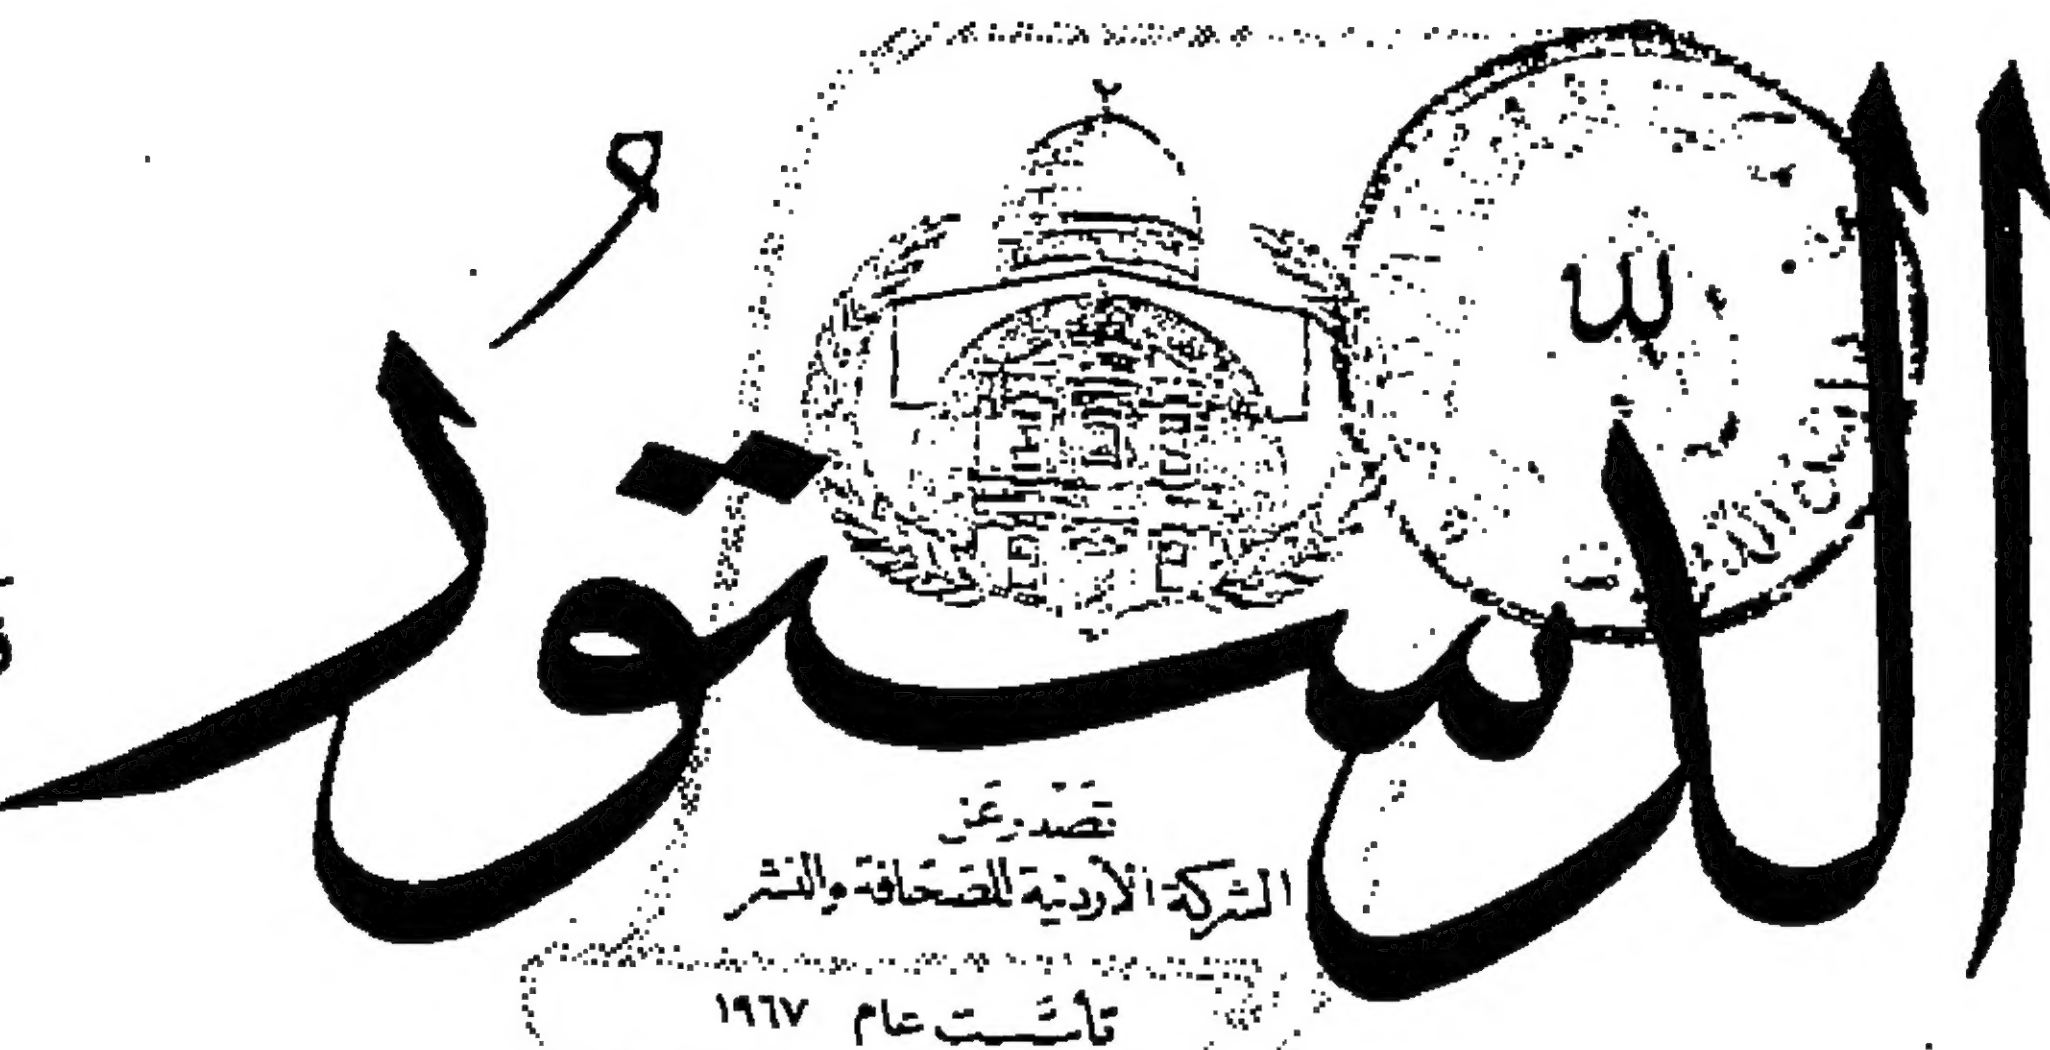 الدستور
تصدر عن
الشركة الأردنية للصحافة والنشر
تأسست عام ١٩٦٧
لله